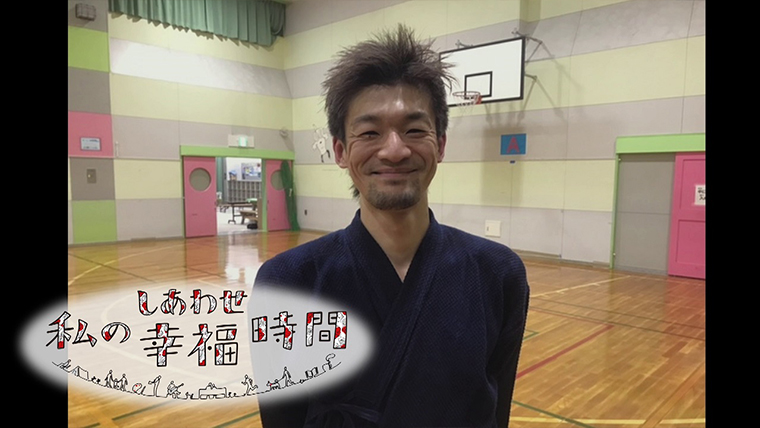 A
しあわせ
私の幸福時間